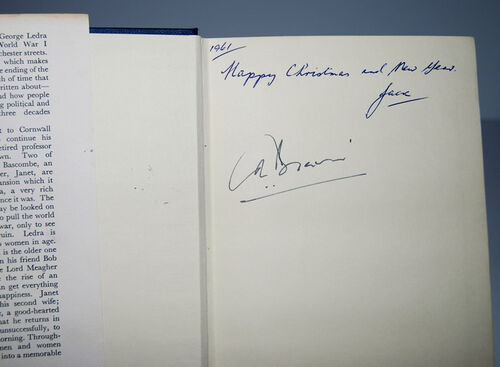 George Ledra
World War I
chester streets.
which makes
e ending of the
h of time that
ritten about—
nd how people
ng political and
three decades
t to Cornwall
continue his
etired professor
own. Two of
Bascombe, an
er, Janet, are
ansion which it
a, a very rich
nce it was. The
ay be looked on
o pull the world
war, only to see
ruin. Ledra is
o women in age.
is the older one
n his friend Bob
e Lord Meagher
e the rise of an
n get everything
happiness. Janet
his second wife;
r, a good-hearted
hat he returns in
unsuccessfully, to
orning. Through-
men and women
into a memorable
1961
Happy Christmas and New Year.
Jack